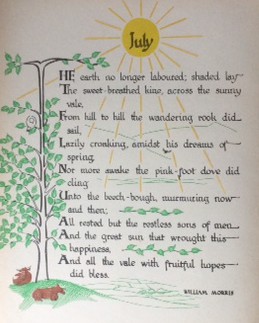 July
THE earth no longer laboured; shaded lay
The sweet-breathed kine, across the sunny
vale,
From hill to hill the wandering rook did
sail,
Lazily croaking, amidst his dreams of
spring;
Nor more awake the pink-foot dove did
cling
Unto the beech-bough, murmuring now
and then;
All rested but the restless sons of men
And the great sun that wrought this
happiness,
And all the vale with fruitful hopes
did bless.
WILLIAM MORRIS